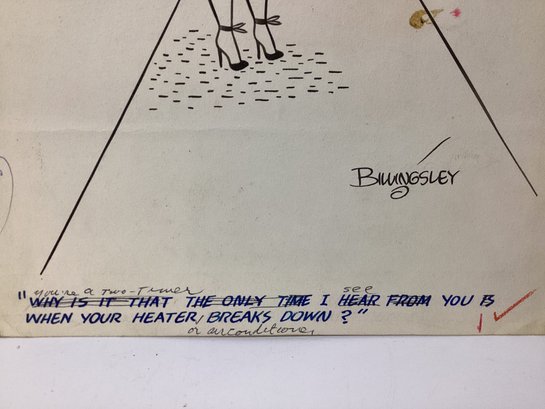 BILLINGSLEY
you're a two-timer see
"WHY IS IT THAT THE ONLY TIME I HEAR FROM YOU IS
WHEN YOUR HEATER, BREAKS DOWN?"
or airconditioner